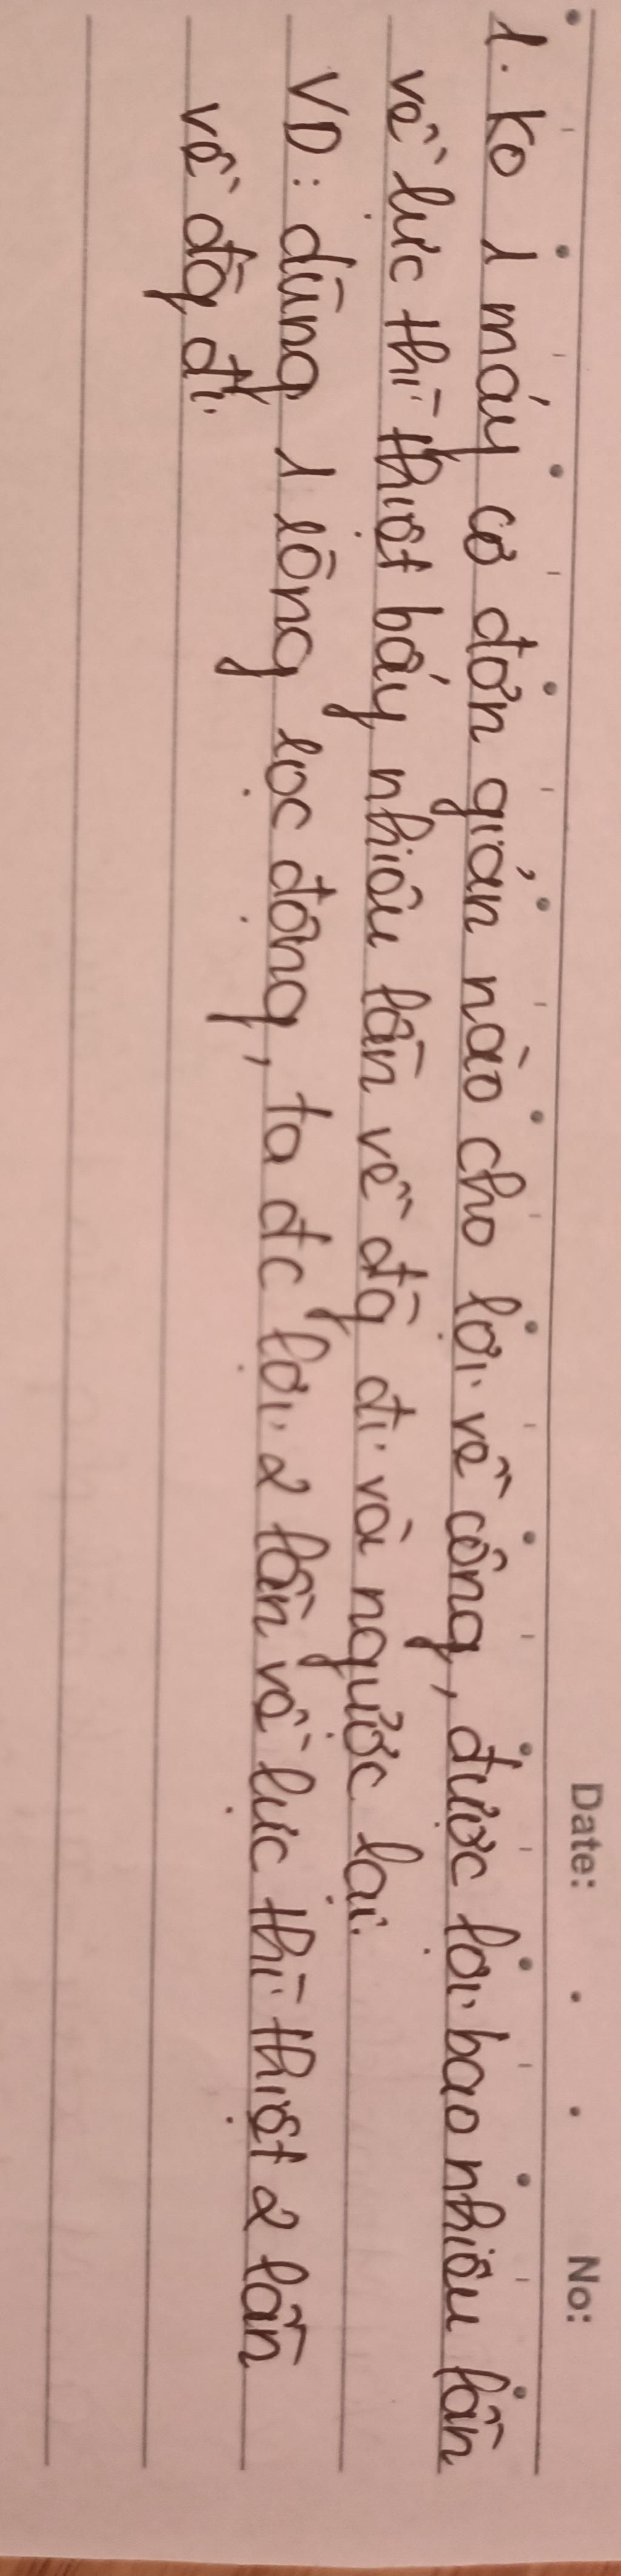 Date: No:
1. Ko 1 máy cơ đơn giản nào cho lợi về công, được lợi bao nhiêu lần
về lực thì thiệt bấy nhiêu lần về đg đi và ngược lại.
VD: dùng 1 ròng rọc động, ta đc lợi 2 lần về lực thì thiệt 2 lần
về đg đi.